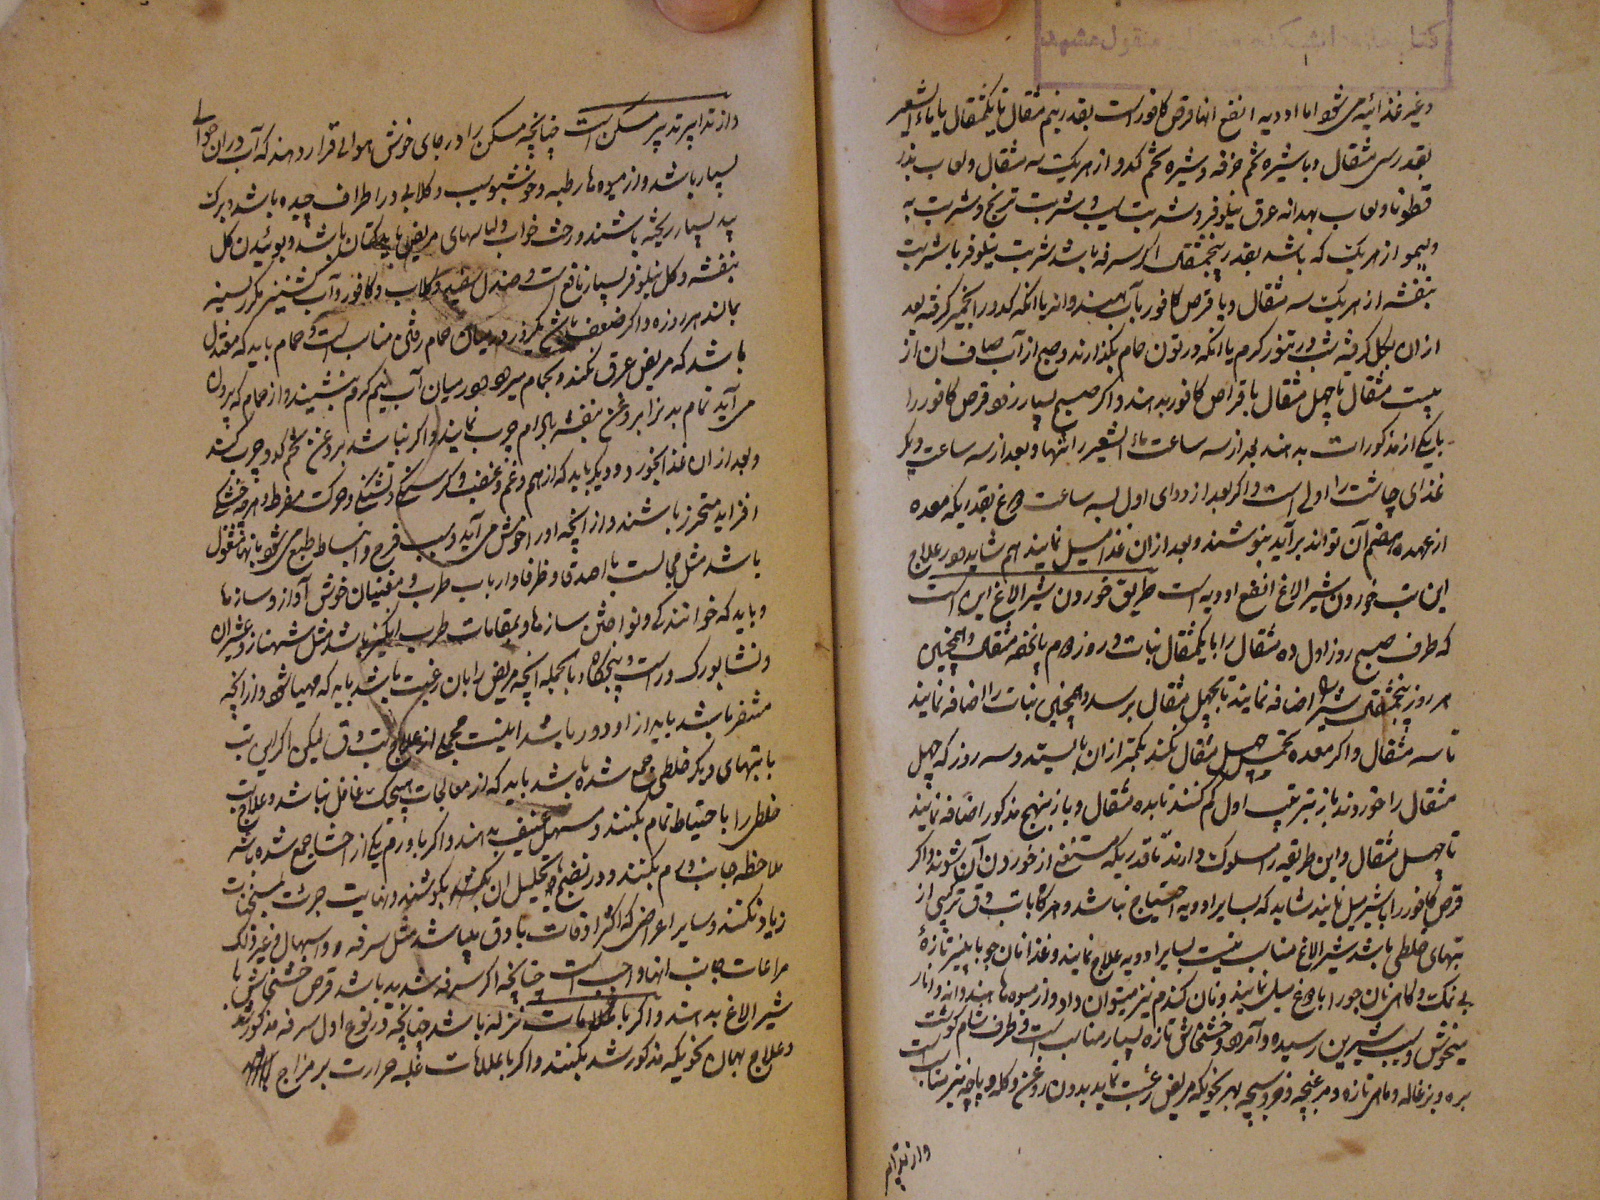 وغیره غذائیه می شود اما ادویه انفع انها قرص کافور است بقدر نیم مثقال تا یکمثقال با ماء الشعیر
بقدر سی مثقال و با شیره تخم خرفه و شیره تخم کدو از هر یک سه مثقال و لعاب بذر
قطونا و لعاب بهدانه عرق نیلوفر و شربت سیب و شربت ترنج و شربت به
و لیمو از هر یک که باشد بقدر پنجمثقال اگر سرفه باشد شربت نیلوفر با شربت
بنفشه از هر یک سه مثقال و با قرص کافور با آب هندوانه یا انکه کدو را بخمیر گرفته بعد
از ان بگل گرفته شب در تنور گرم یا انکه در تون حمام بگذارند و صبح از آب صاف ان از
بیست مثقال تا چهل مثقال با قراص کافور بدهند و اکر صبح بسیار زود قرص کافور را
با یکی از مذکورات بدهند بعد از سه ساعت ماء الشعیر را تنها و بعد از سه ساعت دیگر
غذای چاشت را اولی است و اکر بعد از دوای اول بسه ساعت دوغ بقدریکه معده
از عهده هضم آن تواند بر آید بنوشند و بعد از ان غذا میل نمایند هم شاید و در علاج
این تب خوردن شیر الاغ انفع ادویه است طریق خوردن شیر الاغ این است
که طرف صبح روز اول ده مثقال را با یکمثقال نبات و روز دوم پانزده مثقال و همچنین
هر روز پنجمثقال شیر اضافه نمایند تا بچهل مثقال برسد و همچنین نبات را اضافه نمایند
تا سه مثقال و اکر معده تحمل چهل مثقال نکند بکمتر از ان بایستد و سه روز که چهل
مثقال را خوردند باز بترتیب اول کم کنند تا بده مثقال و باز بنهج مذکور اضافه نمایند
تا چهل مثقال و این طریقه را مسلوک دارند تا قدریکه مستغنی از خوردن آن شوند و اکر
قرص کافور را با شیر میل نمایند شاید که بسایر ادویه احتیاج نباشد و هر کاه با تب دق ترکیبی از
تبهای خلطی باشد شیر الاغ مناسب نیست بسایر ادویه علاج نمایند و غذا نان جو با پنیر تازهٔ
بی نمک و کاهی نان جو را با دوغ میل نمایند و نان گندم نیز میتوان داد و از میوه ها هندوانه و انار
میخوش و سیب شیرین رسیده و آمرود و خشخاش تازه بسیار مناسب است و طرف شام گوشت
بره و بزغاله و ماهی تازه و مرغیچه و خروسیچه بهر نحویکه مریض رغبت نماید بدون روغن و کله و پاچه نیز مناسب است
و از تدابیر
و از تدابیر تدبیر مسکن است چنانچه مسکن را در جای خوش هوائی قرار دهند که آب در ان حوالی
بسیار باشد و از میوه ها رطبه و خوشبو سیب و کلابی در اطراف چیده باشد و برک
بید بسیار ریخته باشند و رخت خواب و لباسهای مریض باید کتان باشد و بوئیدن کل
بنفشه و کل نیلوفر بسیار نافع است و صندل سفید و کلاب و کافور و آب کشنیز مکرر بسینه
بمالند هر روزه و اکر ضعف نباشد یکروز در میان حمام رفتن مناسب است و حمام باید که معتدل
باشد که مریض عرق نکند و بحمام میرود در میان آب نیم کرم بنشیند و از حمام که بیرون
می آید تمام بدن را بروغن بنفشه بادام چرب نمایند و اکر نباشد بروغن تخم کدو چرب کنند
و بعد از ان غذا بخورد و دیکر باید که از هم و غم و غضب و کرسنگی و تشنگی و حرکت مفرط و هر چه خشکی
افزاید متحرز باشند و از انچه او را خوش می آید و سبب فرح و انبساط طبع می شود بانها مشغول
باشد مثل مجالست با اصدقا و ظرفا و ارباب طرب و مغنیان خوش آواز و سازها
و باید که خوانندگی و نواختن سازها و بمقامات طرب انکیز باشد مثل شهناز و عشیران
و نشابورک و راست و پنجگاه بالجمله آنچه مریض را بان رغبت باشد باید که مهیا شود و از انچه
متنفر باشد باید از او دور باشد اینست مجملی از علاج تب دق لیکن اکر این تب
با تبهای دیکر خلطی جمع شده باشد باید که از معالجات هیچیک غافل نباشد و علاج تب
خلطی را با احتیاط تمام بکنند و مسهل عنیف ندهند و اکر با ورم یکی از احشا جمع شده باشد
ملاحظه جانب ورم بکنند و در نضج و تحلیل ان بکوشند و نهایت جرئت بمسخنات
زیاد نکنند و سایر اعراضی که اکثر اوقات با دق میباشد مثل سرفه و اسهال و غیر ذلک
مراعات جانب انها واجب است چنانچه اکر سرفه شدید باشد قرص خشخاش با
شیر الاغ بدهند و اکر با علامات نزله باشد چنانچه در نوع اول سرفه مذکور شد
و علاج بهمان نحویکه مذکور شد بکنند و اکر با علامات غلبه حرارت بر مزاج